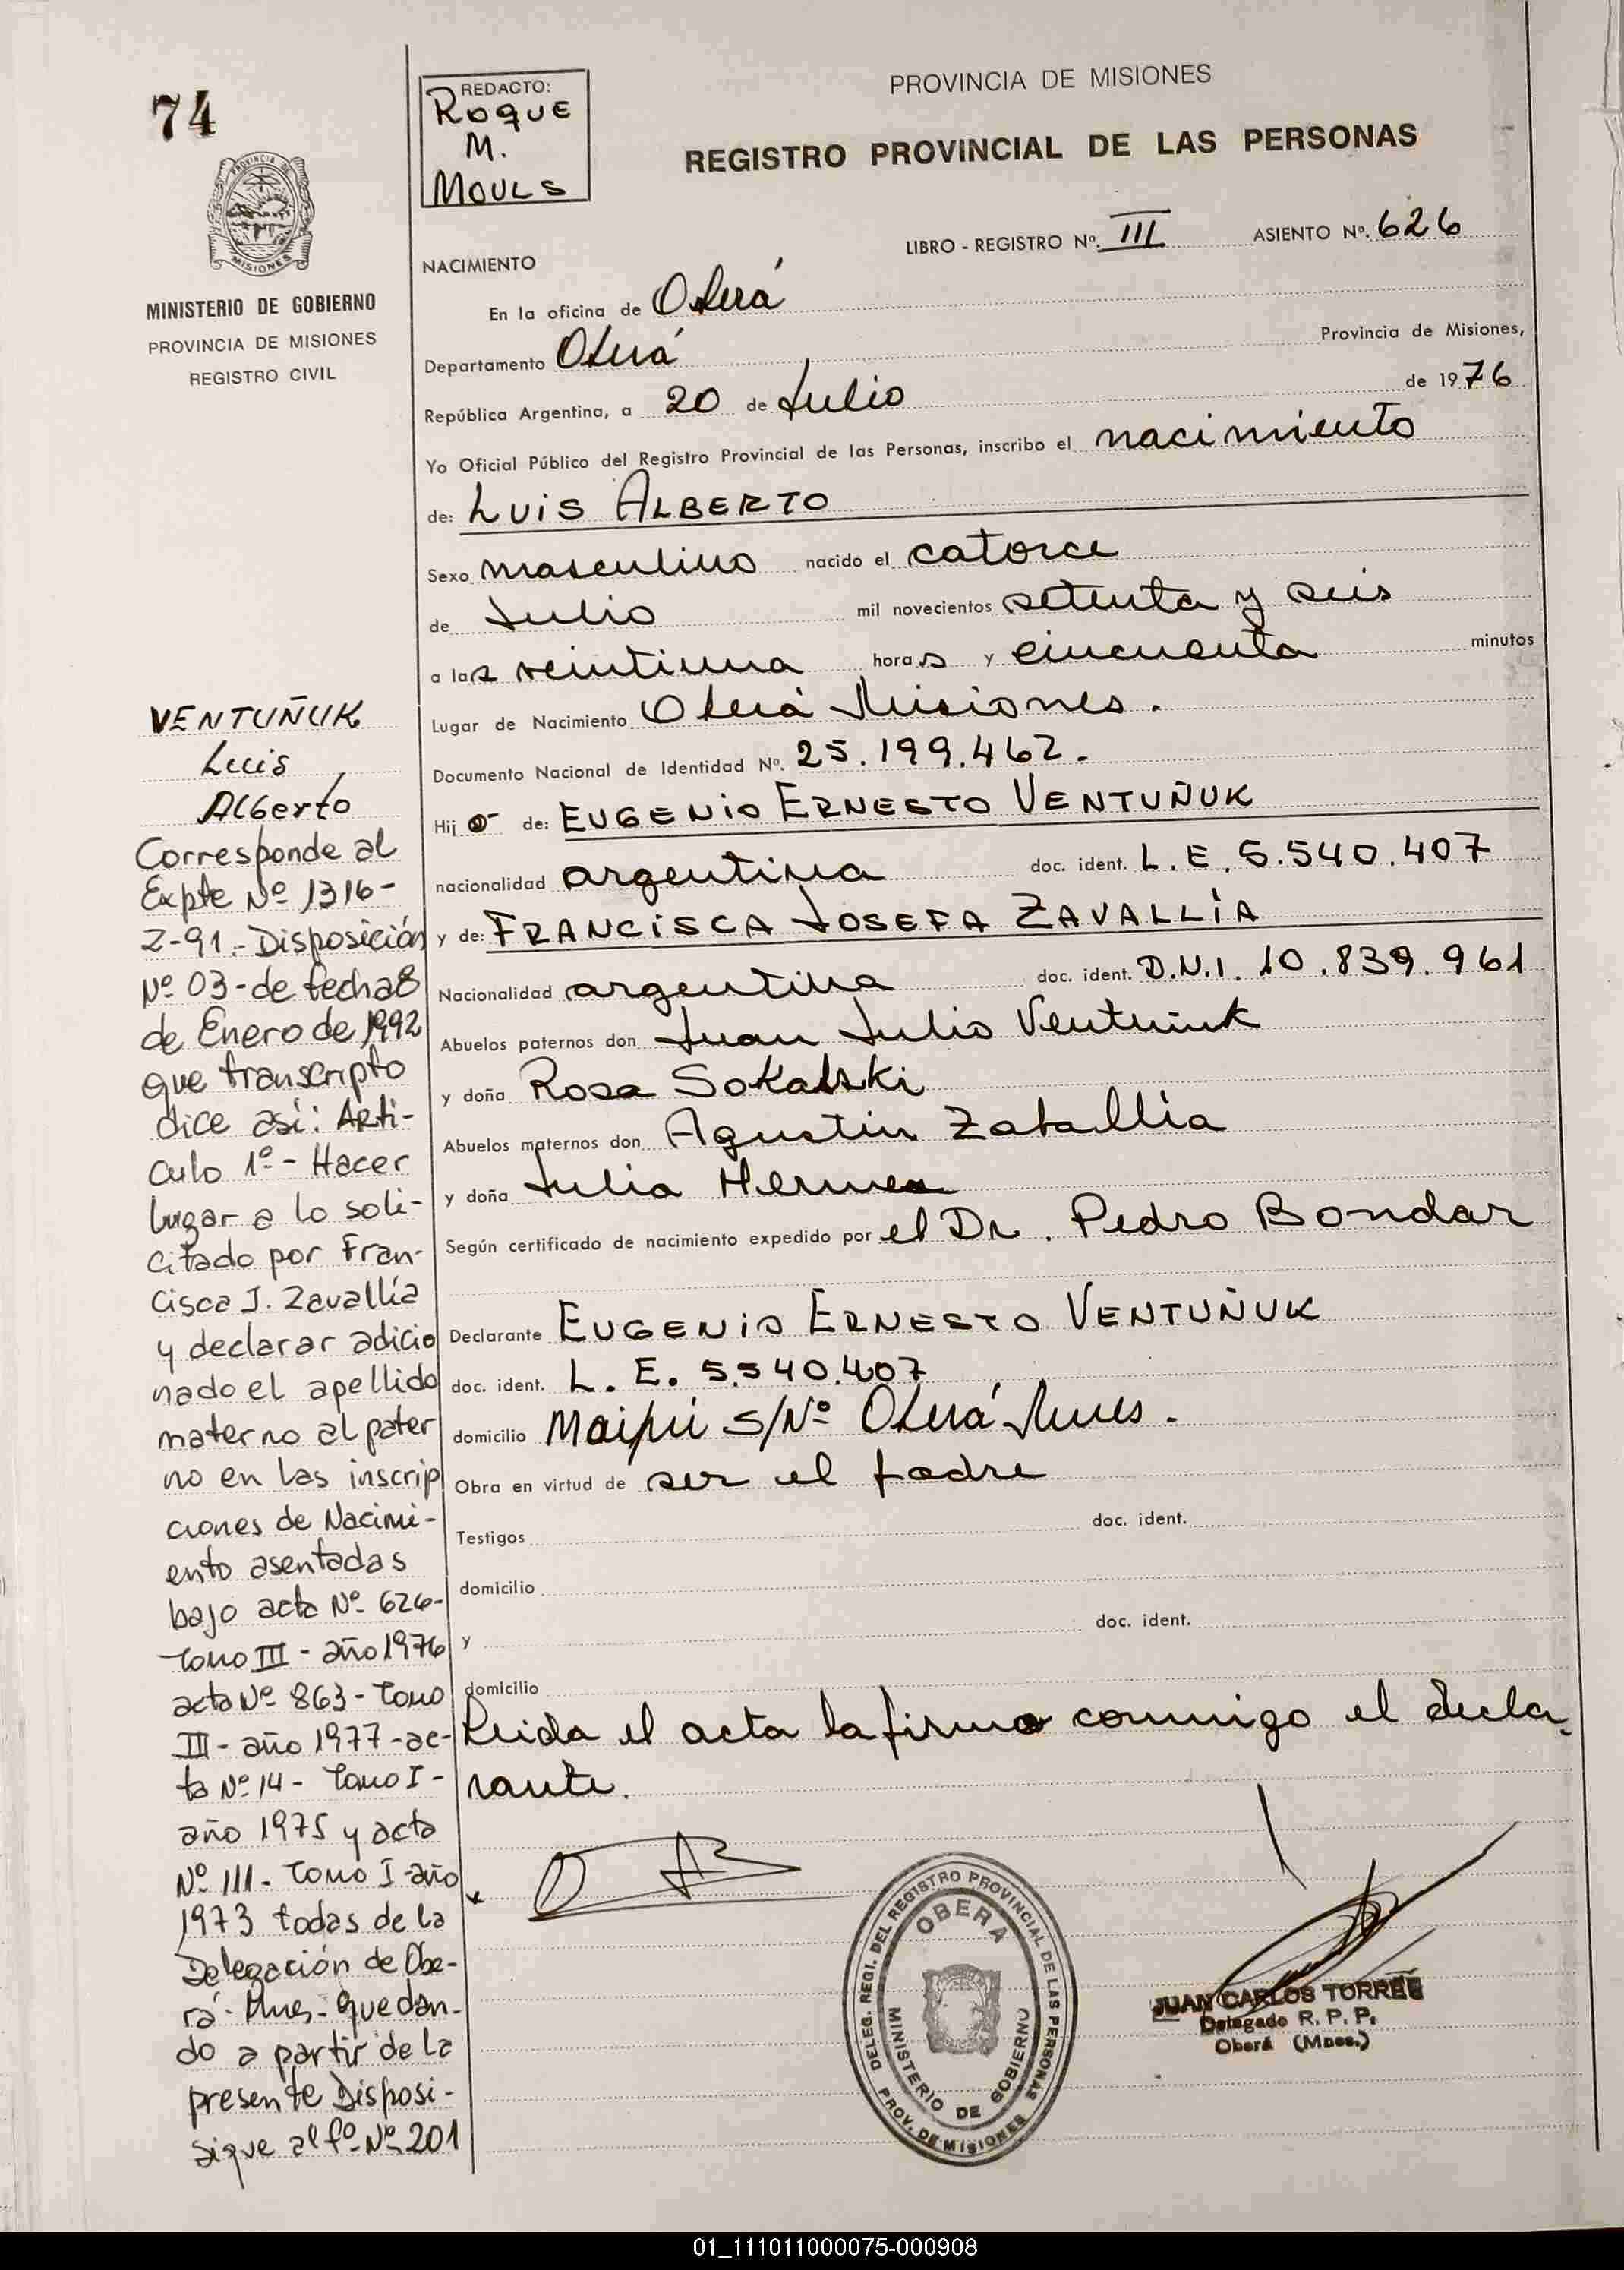 74
REDACTO:
ROQUE
M.
MOULS
PROVINCIA DE MISIONES
REGISTRO PROVINCIAL DE LAS PERSONAS
LIBRO - REGISTRO Nº. III ASIENTO Nº. 626
PROVINCIA DE
MISIONES
MINISTERIO DE GOBIERNO
PROVINCIA DE MISIONES
REGISTRO CIVIL
NACIMIENTO
En la oficina de Oberá
Departamento Oberá Provincia de Misiones,
República Argentina, a 20 de Julio de 1976
Yo Oficial Público del Registro Provincial de las Personas, inscribo el nacimiento
de: LUIS ALBERTO
Sexo masculino nacido el catorce
de Julio mil novecientos setenta y seis
a las veintiuna horas y cincuenta minutos
Lugar de Nacimiento Oberá Misiones.
Documento Nacional de Identidad Nº. 25.199.462.
Hijo de: EUGENIO ERNESTO VENTUÑUK
nacionalidad argentina doc. ident. L.E. 5.540.407
y de: FRANCISCA JOSEFA ZAVALLÍA
Nacionalidad argentina doc. ident. D.N.I. 10.839.961
Abuelos paternos don Juan Julio Ventuiuk
y doña Rosa Sokalski
Abuelos maternos don Agustin Zaballia
y doña Julia Hermes
Según certificado de nacimiento expedido por el Dr. Pedro Bondar
Declarante EUGENIO ERNESTO VENTUÑUK
doc. ident. L.E. 5.540.407
domicilio Maipú S/Nº Oberá Mnes.
Obra en virtud de ser el padre
Testigos doc. ident.
domicilio
y doc. ident.
domicilio
Leida el acta la firma conmigo el decla-
rante.
VENTUÑUK
Luis
Alberto
Corresponde al
Expte Nº 1316-
Z-91.- Disposición
Nº 03-de fecha 8
de Enero de 1992
que transcripto
dice así: Arti-
culo 1º- Hacer
lugar a lo soli-
citado por Fran-
cisca J. Zavallía
y declarar adicio
nado el apellido
materno al pater
no en las inscrip
ciones de Nacimi-
ento asentadas
bajo acta Nº 626-
Tomo III - año 1976
acta Nº 863- Tomo
III- año 1977 -ac-
ta Nº 14 - Tomo I -
año 1975 y acta
Nº 111- Tomo I año
1973 todas de la
Delegación de Obe-
rá- Mnes- quedan-
do a partir de la
presente Disposi-
sigue al fº Nº 201
DELEG. REGI. DEL REGISTRO PROVINCIAL DE LAS PERSONAS
OBERA
MINISTERIO DE GOBIERNO
PROV. DE MISIONES
JUAN CARLOS TORRES
Delegado R. P. P.
Oberá (Mnes.)
01_111011000075-000908